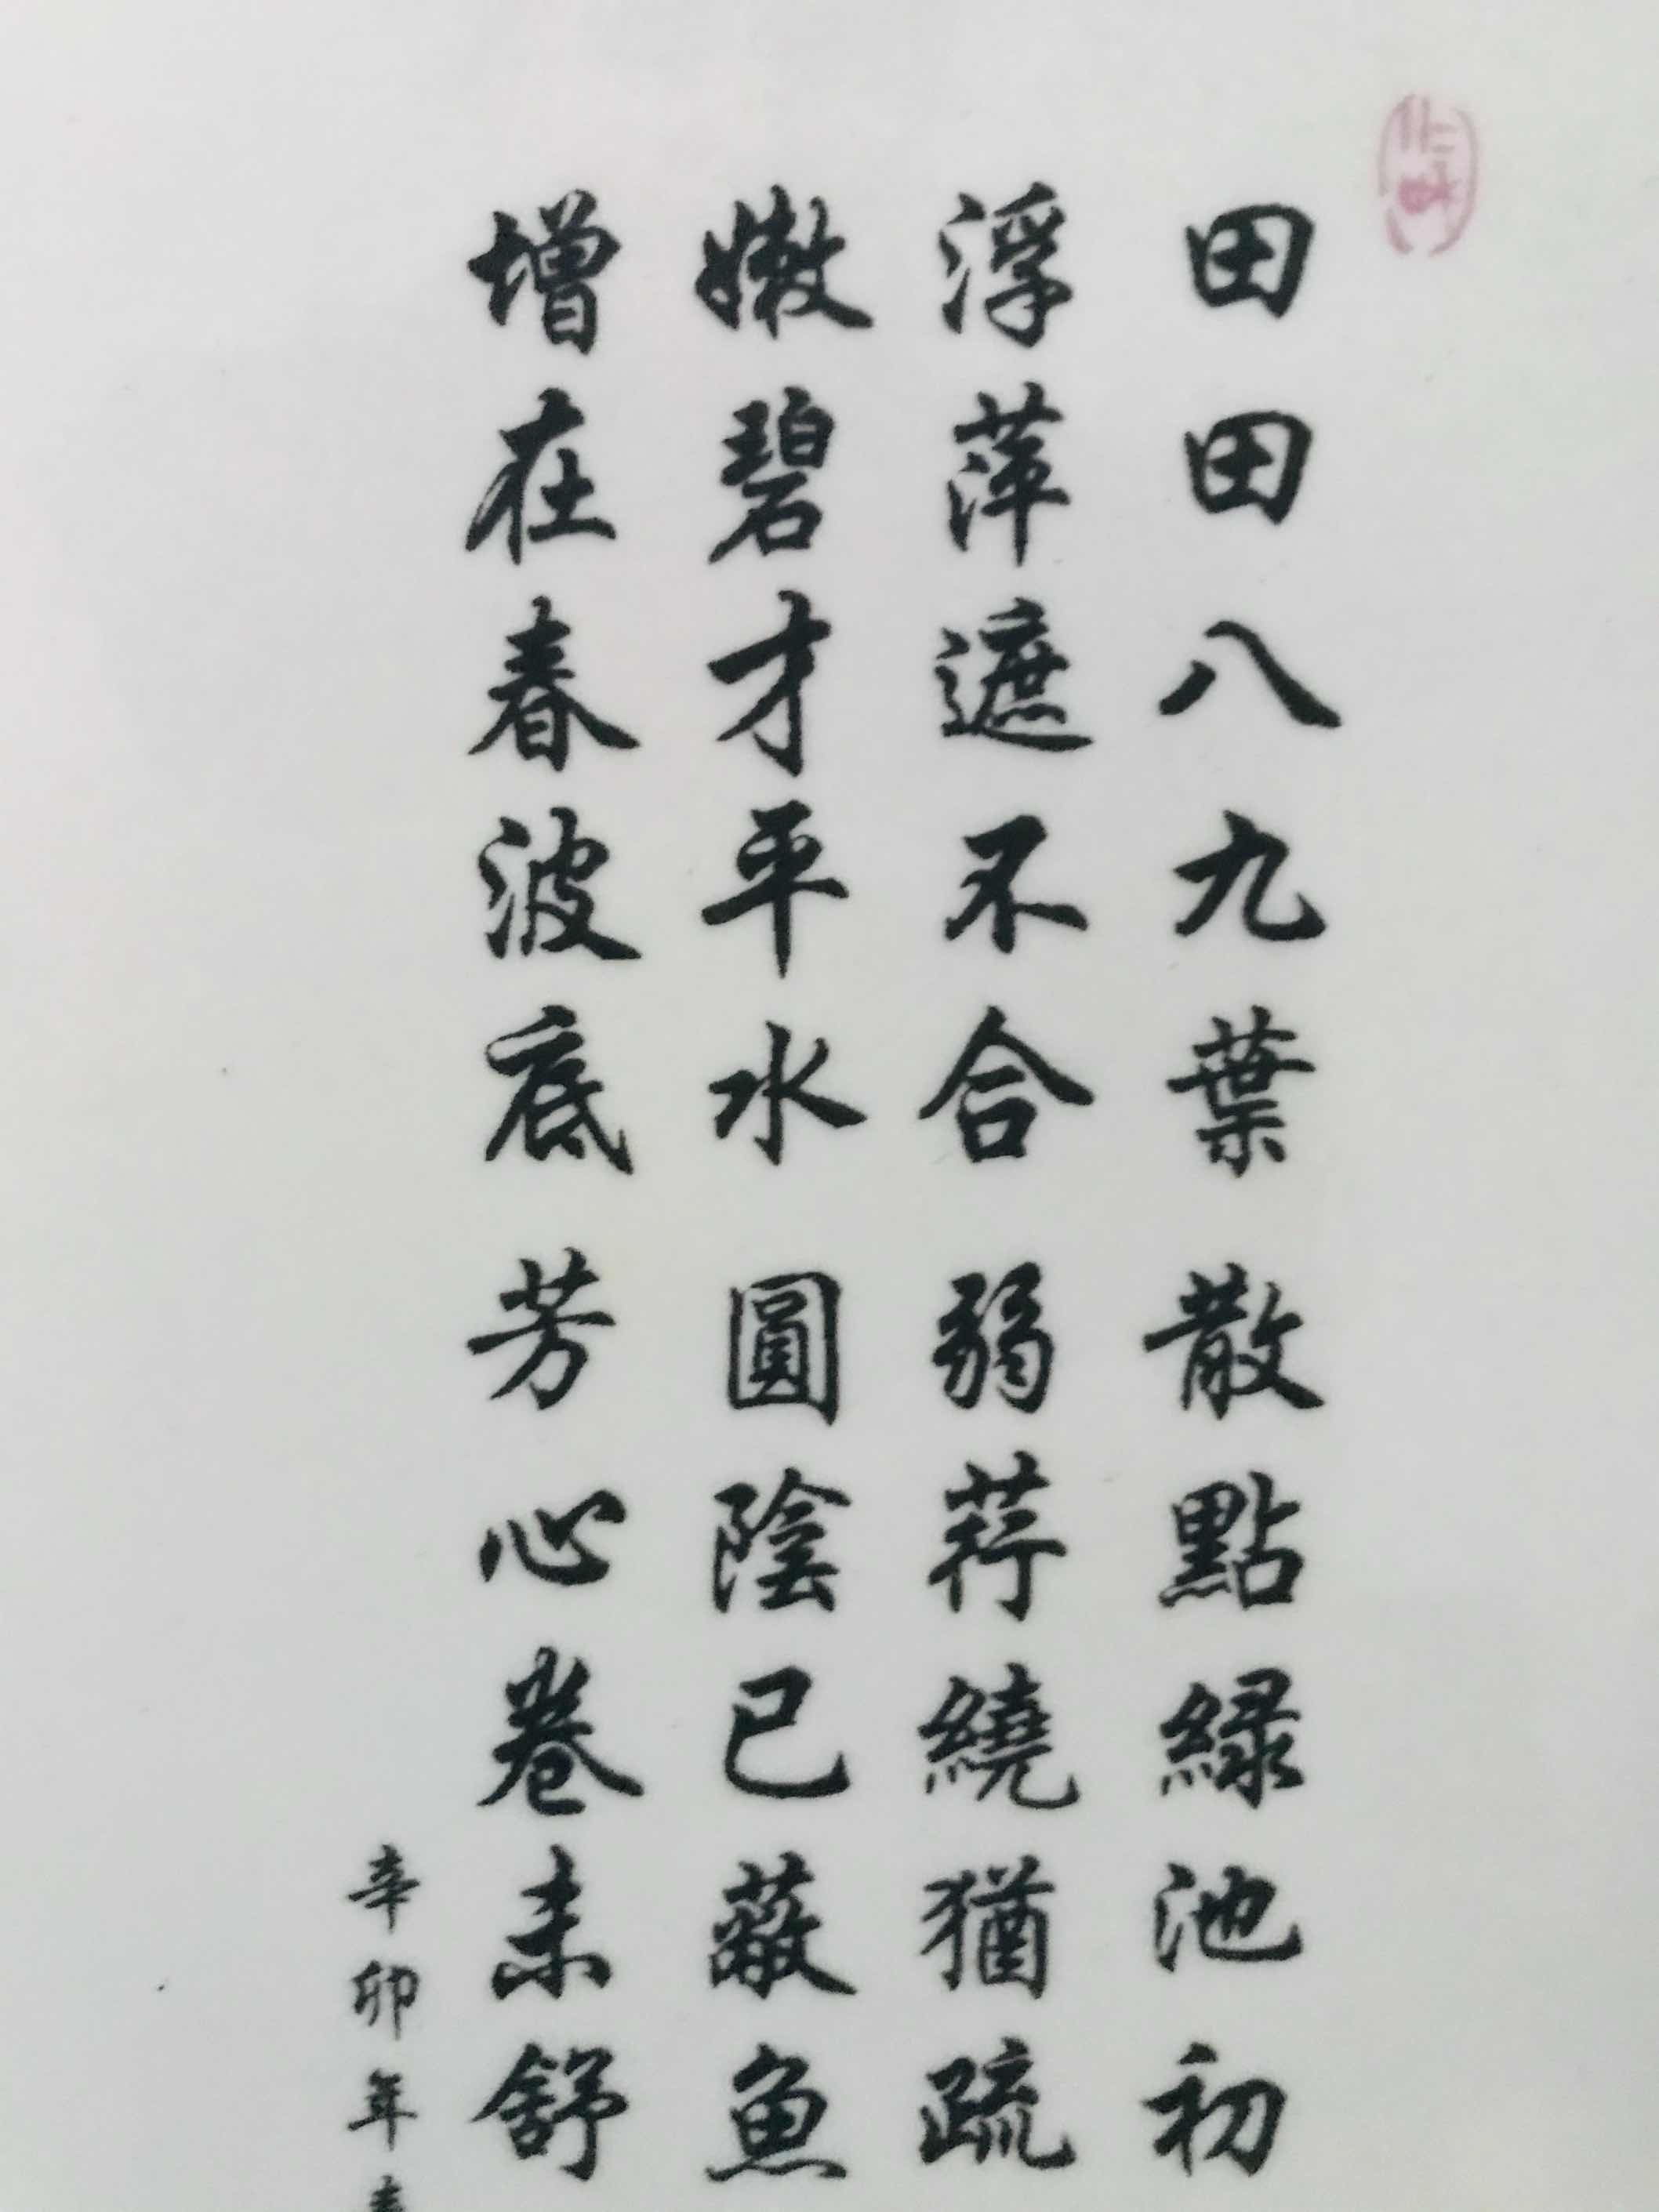 田田八九葉散點綠池初
浮萍遮不合弱荇繞猶疏
嫩碧才平水圓陰已蔽魚
增在春波底芳心卷未舒
辛卯年春